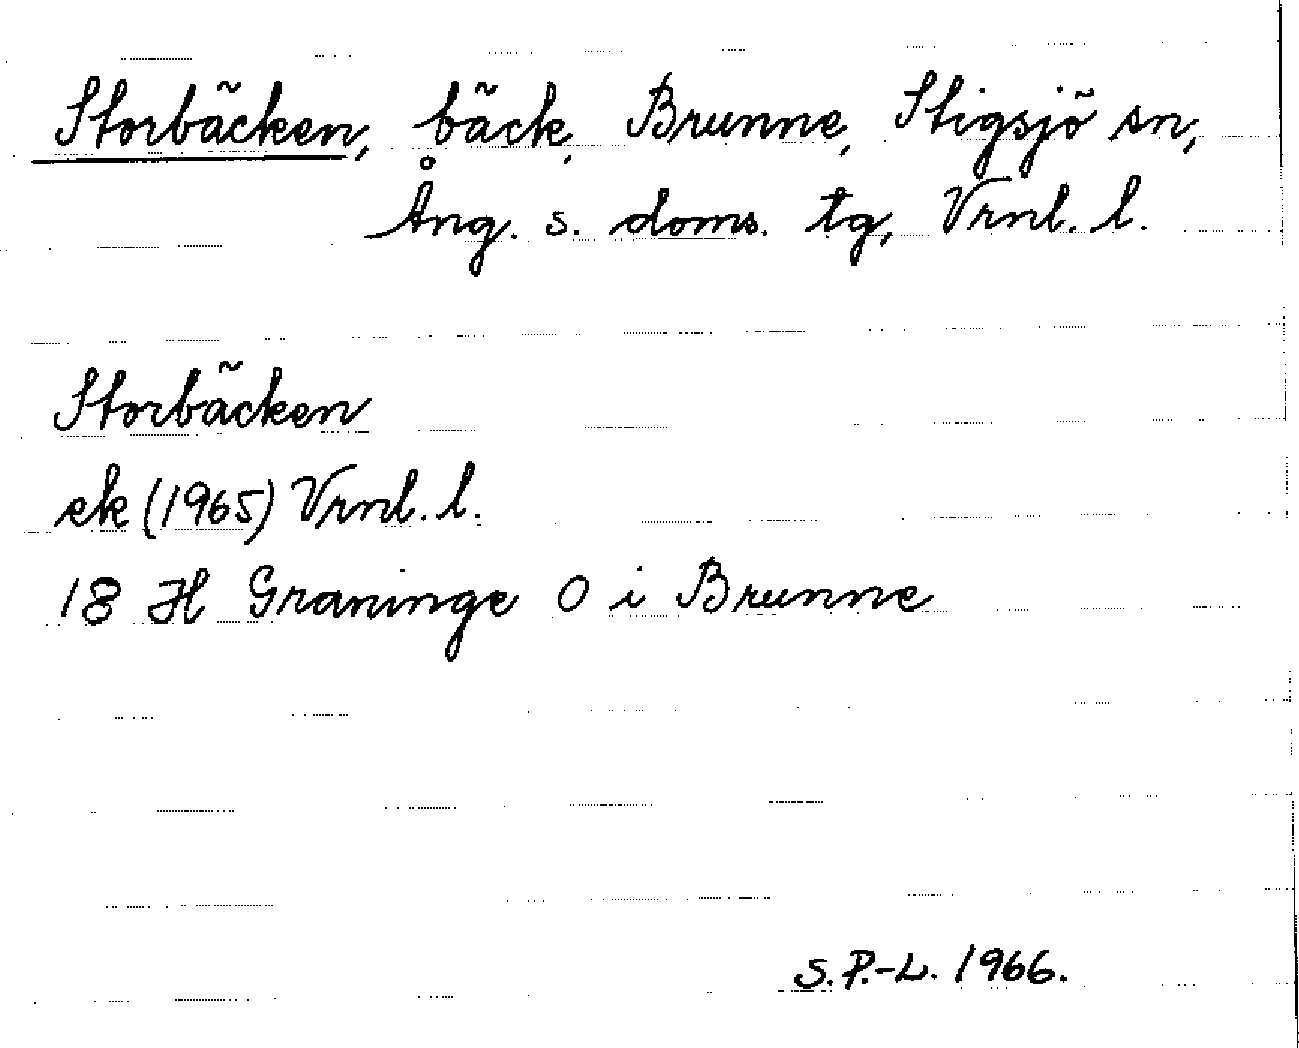 Storbäcken, bäck, Brunne, Stigsjö sn,
Ång. s. doms. tg, Vrnl. l.
Storbäcken
ek (1965) Vrnl. l.
18 H Graninge O i Brunne
S. P.-L. 1966.